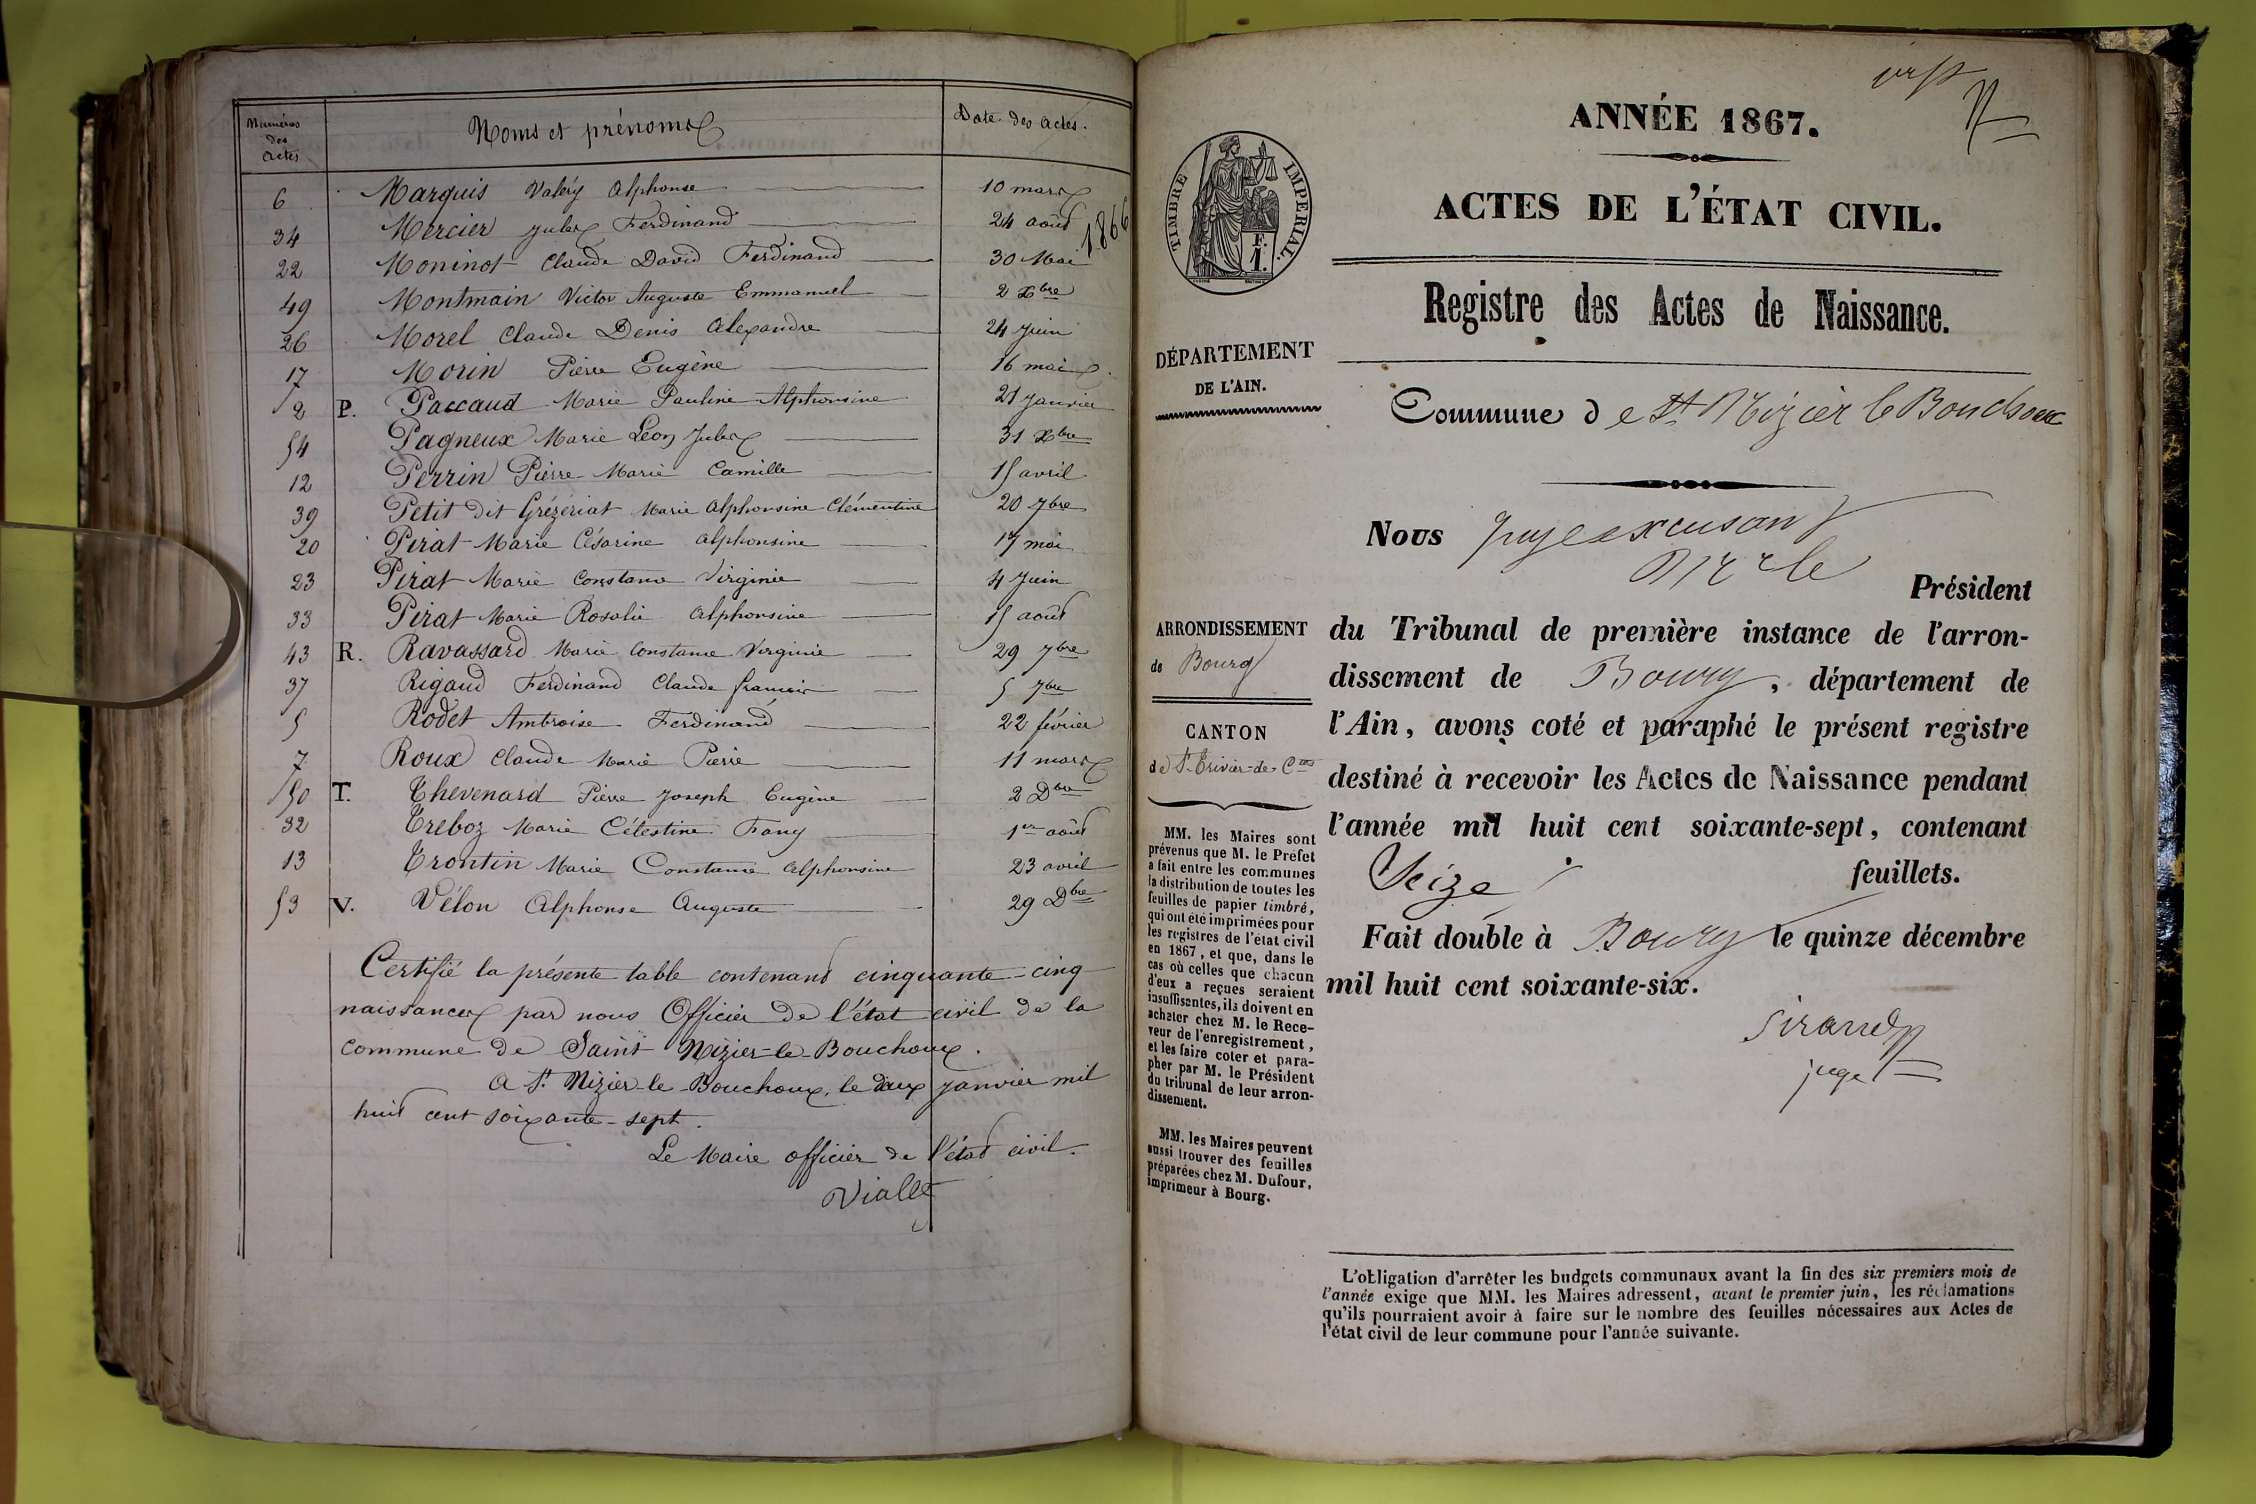 Numéros des actes	Noms et prénoms	Date des actes.
1866
6	Marquis Valéry Alphonse	10 mars
34	Mercier Jules Ferdinand	24 août
22	Moninot Claude David Ferdinand	30 Mai
49	Montmain Victor Auguste Emmanuel	2 Xbre
26	Morel Claude Denis Alexandre	24 Juin
17	Morin Pierre Eugène	16 mai
2	P.	Paccaud Marie Pauline Alphonsine	21 Janvier
54	Pagneux Marie Léon Jules	31 Xbre
12	Perrin Pierre Marie Camille	15 avril
39	Petit dit Grézériat Marie Alphonsine Clémentine	20 7bre
20	Pirat Marie Césarine Alphonsine	17 mai
23	Pirat Marie Constance Virginie	4 Juin
33	Pirat Marie Rosalie Alphonsine	15 août
43	R.	Ravassard Marie Constance Virginie	29 7bre
37	Rigaud Ferdinand Claude françois	5 7bre
5	Rodet Ambroise Ferdinand	22 février
7	Roux Claude Marie Pierre	11 mars
50	T.	Thevenard Pierre Joseph Eugène	2 Dbre
32	Treboz Marie Célestine Fany	1er août
13	Trontin Marie Constance Alphonsine	23 avril
53	V.	Vélon Alphonse Auguste	29 Dbre
Certifié la présente table contenant cinquante-cinq
naissances par nous Officier de l'état civil de la
commune de Saint Nizier-le-Bouchoux.
A St. Nizier-le-Bouchoux, le deux janvier mil
huit cent soixante-sept.
Le Maire officier de l'état civil.
Viallet
ANNÉE 1867.
ACTES DE L'ÉTAT CIVIL.
TIMBRE IMPERIAL.
F.
1.
Registre des Actes de Naissance.
DÉPARTEMENT
DE L'AIN.
Commune de St Nizier le Bouchoux
Nous Juge excusant
Mr le
Président
ARRONDISSEMENT
de Bourg
CANTON
de St. Trivier-de-Ctes
du Tribunal de première instance de l'arron-
dissement de Bourg, département de
l'Ain, avons coté et paraphé le présent registre
destiné à recevoir les Actes de Naissance pendant
l'année mil huit cent soixante-sept, contenant
Seize feuillets.
Fait double à Bourg le quinze décembre
mil huit cent soixante-six.
Sirand
juge
MM. les Maires sont
prévenus que M. le Préfet
a fait entre les communes
la distribution de toutes les
feuilles de papier timbré,
qui ont été imprimées pour
les registres de l'état civil
en 1867, et que, dans le
cas où celles que chacun
d'eux a reçues seraient
insuffisantes, ils doivent en
acheter chez M. le Rece-
veur de l'enregistrement,
et les faire coter et para-
pher par M. le Président
du tribunal de leur arron-
dissement.
MM. les Maires peuvent
aussi trouver des feuilles
préparées chez M. Dufour,
imprimeur à Bourg.
L'obligation d'arrêter les budgets communaux avant la fin des six premiers mois de
l'année exige que MM. les Maires adressent, avant le premier juin, les réclamations
qu'ils pourraient avoir à faire sur le nombre des feuilles nécessaires aux Actes de
l'état civil de leur commune pour l'année suivante.